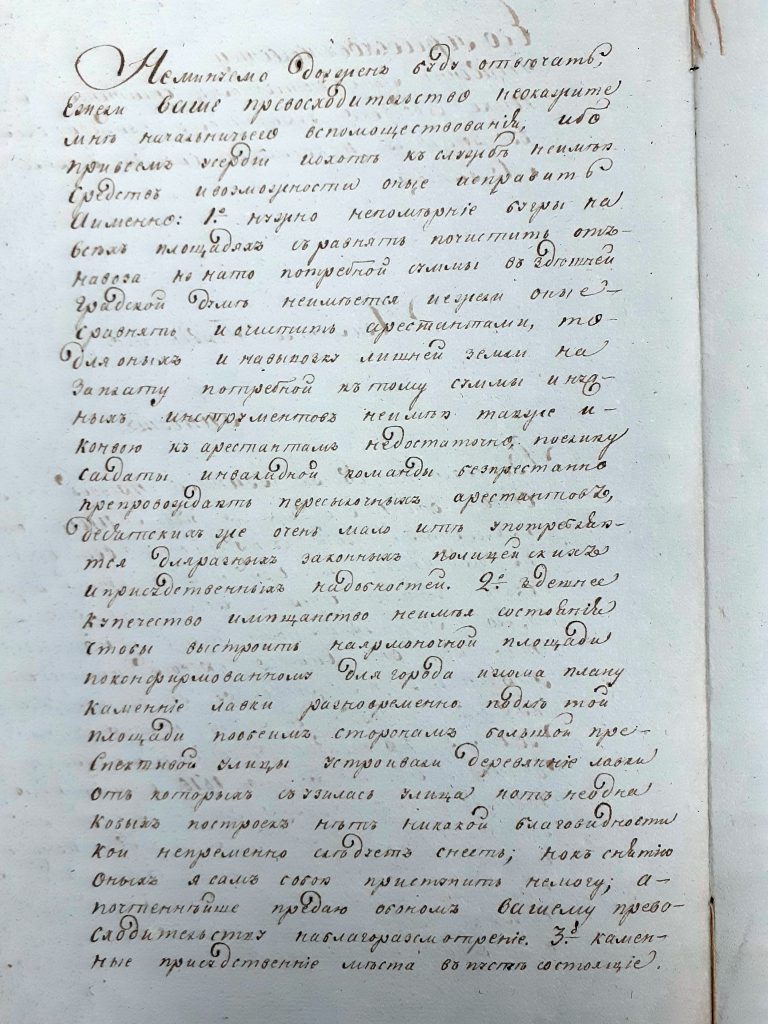 Неминуемо должен буду отвечать,
Ежели Ваше превосходительство неокажите
мнѣ начальничьего вспомоществованія, ибо
привсемъ усердіи иохотѣ къ службѣ неимѣю
средствъ ивозможности оные исправить
Аименно: 1.е нужно непомѣрніе бугры на
всѣхъ площадяхъ съравнять почистить отъ-
навоза но нато потребной суммы въ здѣшней
градской думѣ неимѣется иежели оные-
сравнять и очистить арестантами, то-
для оныхъ и навывозку лишней земли на
заплату потребной къ тому суммы и нуж-
ныхъ инструментовъ неимѣю также и-
конвою къ арестантамъ недостаточно, поелику
салдаты инвалидной команды безпрестанно
препровождаютъ пересылочныхъ арестантовъ,
десятскихъ же очень мало итѣ употребляю-
тся дляразныхъ законныхъ полицейскихъ
иприсудственныхъ надобностей. 2.е здешнее
купечество имѣщанство неимѣя состоянія
чтобы выстроить наярмоночной площади
поконфирмованному для города плану
каменніе лавки разновременно той
площади пообеимъ сторонамъ большой пре-
спективой улицы устроивали деревянніе лавки
отъ которыхъ съузилась улица иотъ неодна
ковыхъ построекъ нѣтъ никакой благовидности
кои непременно слѣдуетъ снесть; нокъ снятію
оныхъ я самъ собою приступить немогу; а-
почтеннѣйше предаю обономъ Вашему прево-
сходительству наблагоразсмотреніе. 3.е камен-
ные присудственніе мѣста въ пустѣ состоящіе.